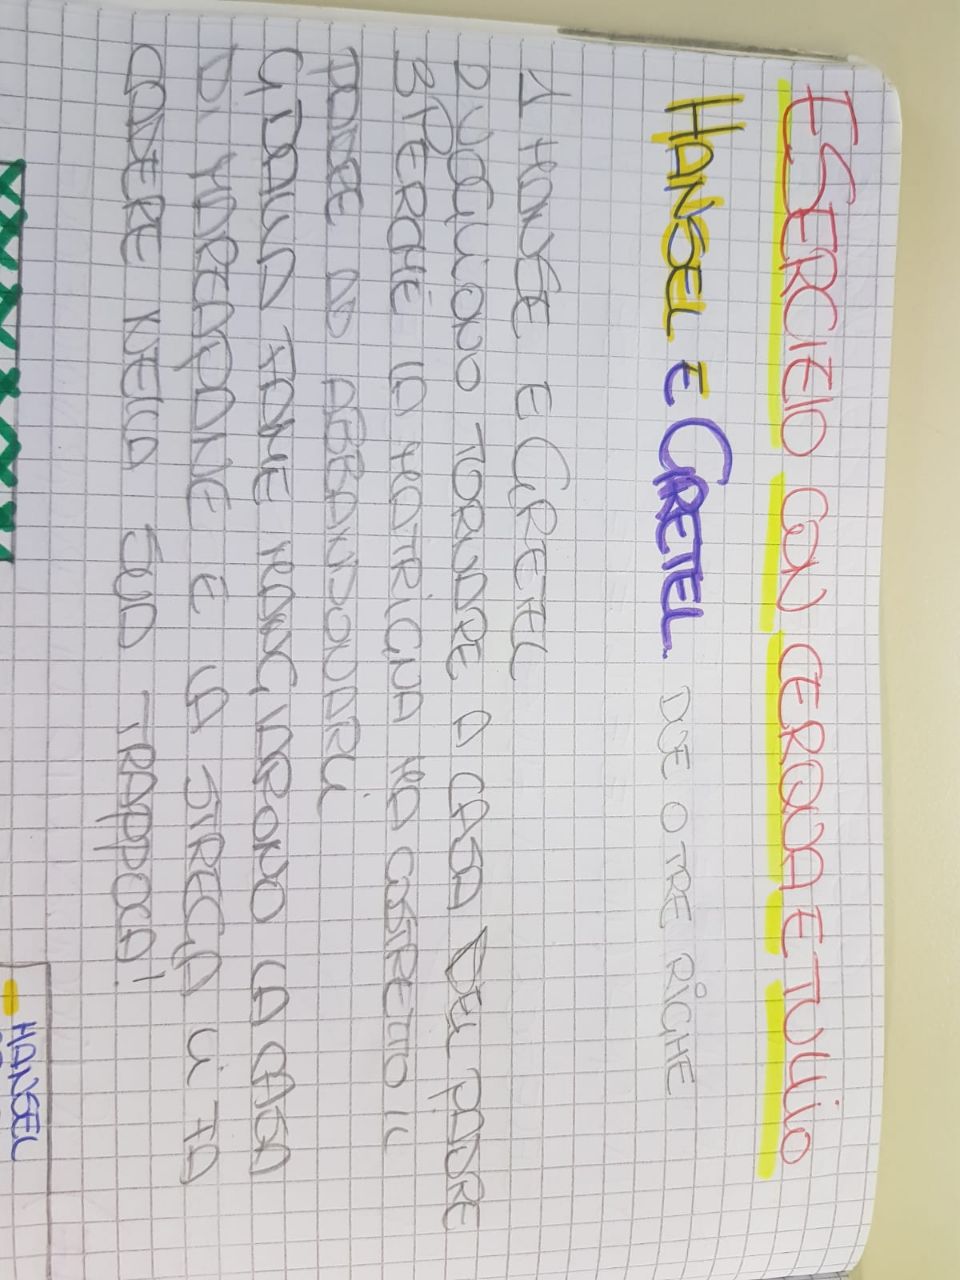 ESERCIZIO CON CERQUA E TULLIO
HANSEL E GRETEL. DUE O TRE RIGHE
1 HANSE E GRETEL
2 VOGLIONO TORNARE A CASA DEL PADRE
3 PERCHÉ LA MATRIGNA HA COSTRETTO IL
PADRE AD ABBANDONARLI
4 DALLA FAME MANGIARONO LA CASA
DI MARZAPANE E LA STREGA LI FA
CADERE NELLA SUA TRAPPOLA!
HANSEL